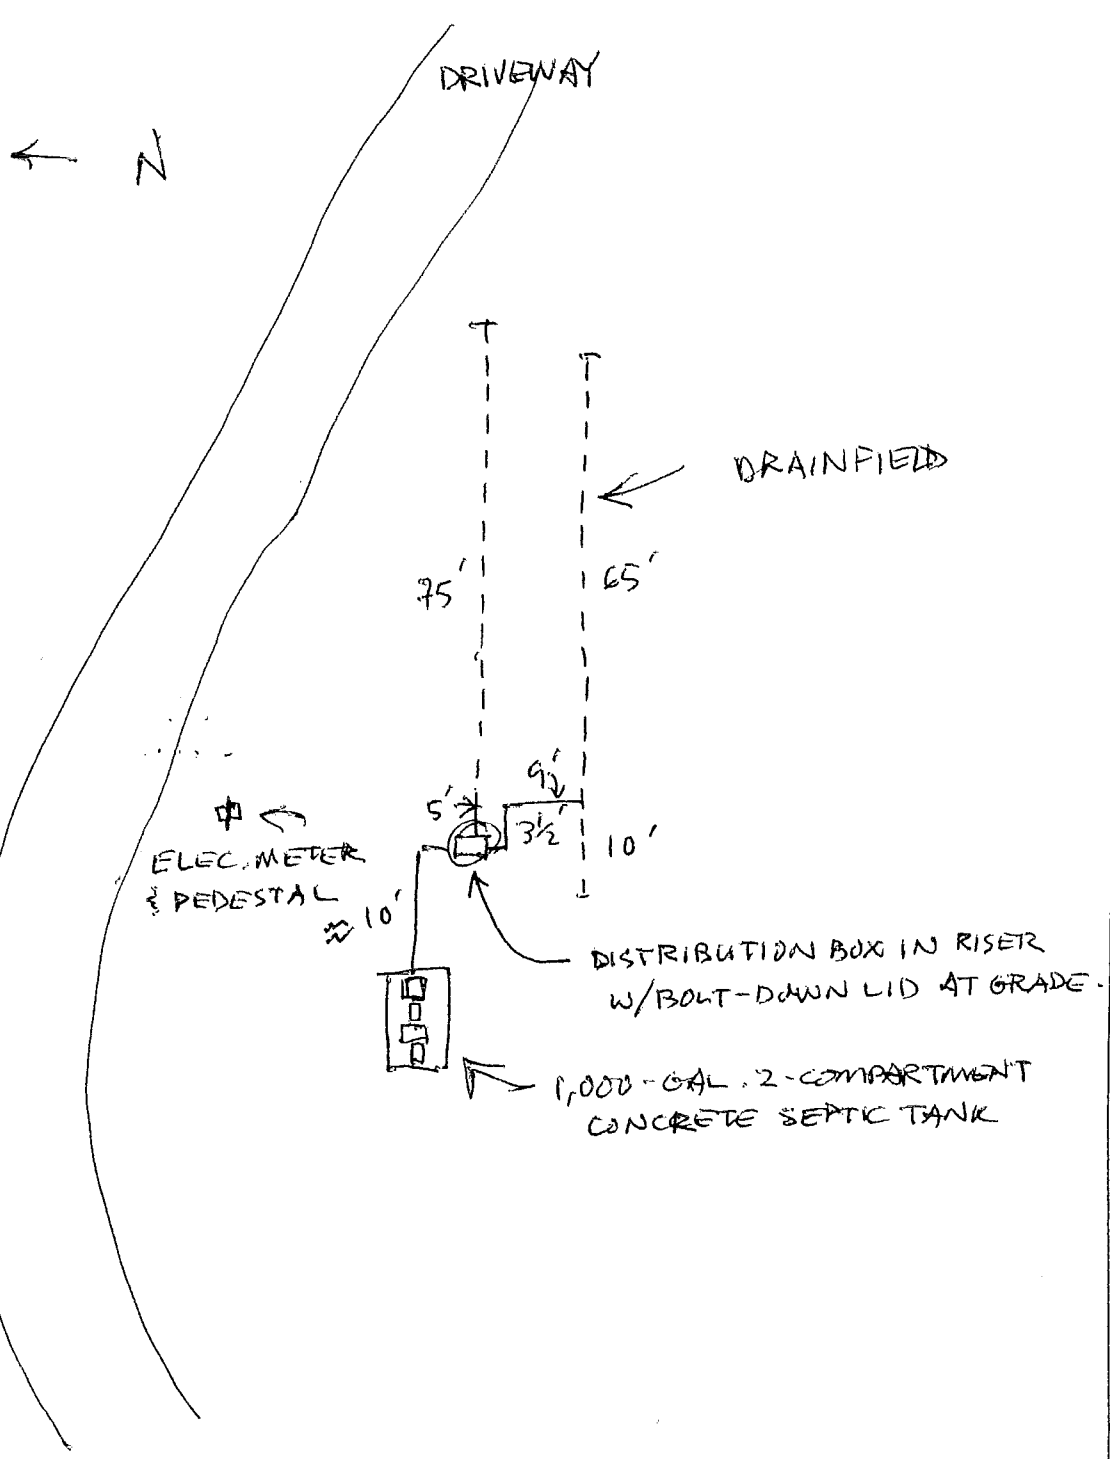 DRIVEWAY
N
DRAINFIELD
75'
65'
9'
5'
3½'
10'
ELEC. METER
& PEDESTAL
≈ 10'
DISTRIBUTION BOX IN RISER
W/BOLT-DOWN LID AT GRADE.
1,000-GAL. 2-COMPARTMENT
CONCRETE SEPTIC TANK